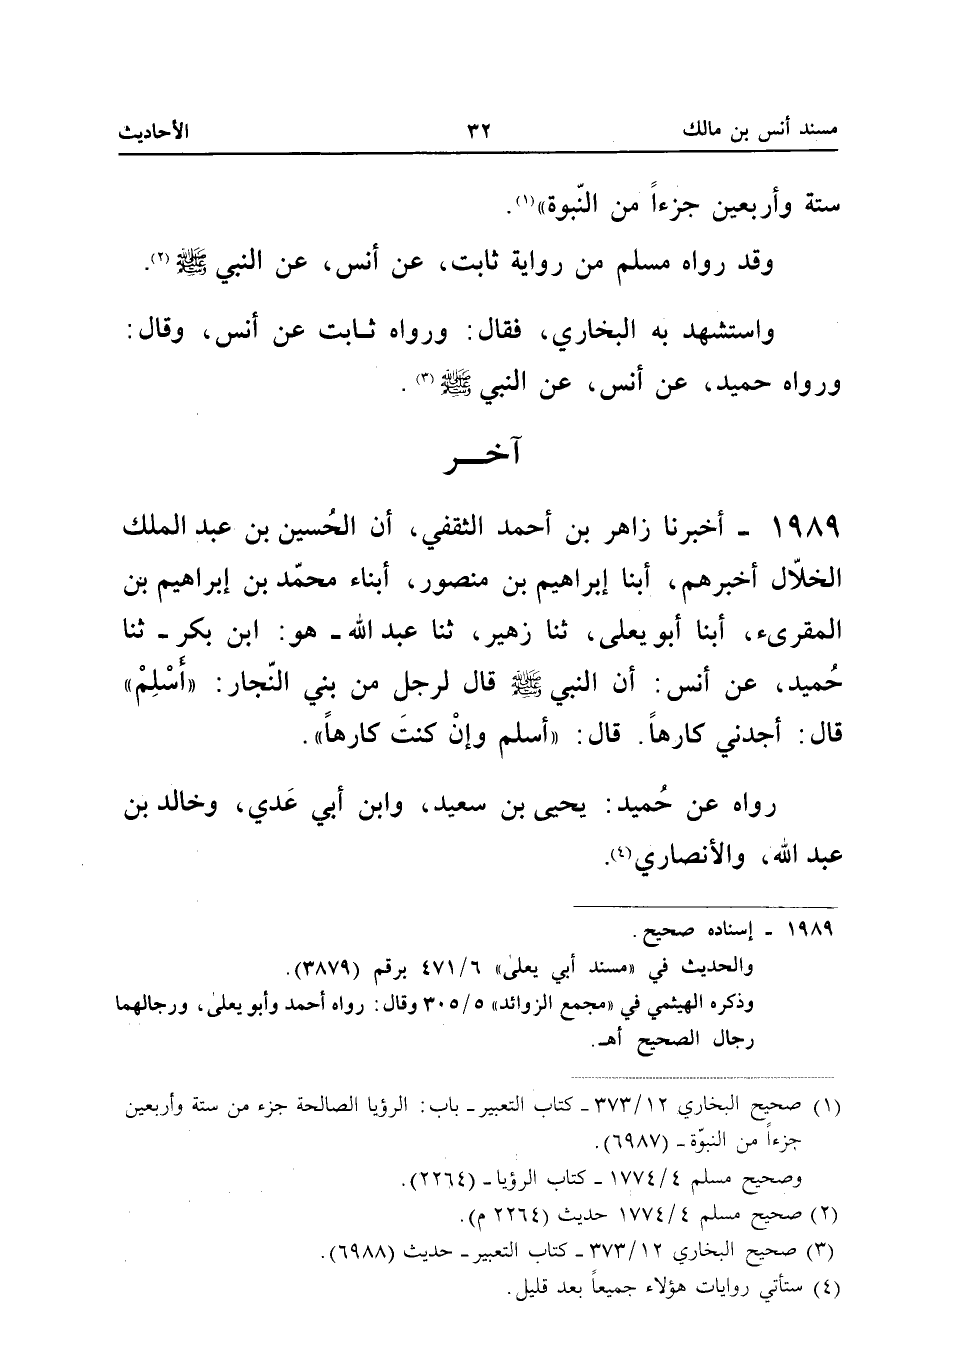 مسند أنس بن مالك ٣٢ الأحاديث
ستة وأربعين جزءاً من النّبوة»(١).
وقد رواه مسلم من رواية ثابت، عن أنس، عن النبي ﷺ(٢).
واستشهد به البخاري، فقال: ورواه ثـابت عن أنس، وقال:
ورواه حميد، عن أنس، عن النبي ﷺ(٣).
آخـــر
١٩٨٩ ـ أخبرنا زاهر بن أحمد الثقفي، أن الحُسين بن عبد الملك
الخلّال أخبرهم، أبنا إبراهيم بن منصور، أبناء محمّد بن إبراهيم بن
المقرىء، أبنا أبو يعلى، ثنا زهير، ثنا عبد الله ـ هو: ابن بكر ـ ثنا
حُميد، عن أنس: أن النبي ﷺ قال لرجل من بني النّجار: «أَسْلِمْ»
قال: أجدني كارهاً. قال: «أسلم وإنْ كنتَ كارهاً».
رواه عن حُميد: يحيى بن سعيد، وابن أبي عَدي، وخالد بن
عبد الله، والأنصاري(٤).
١٩٨٩ ـ إسناده صحيح.
والحديث في «مسند أبي يعلىٰ» ٤٧١/٦ برقم (٣٨٧٩).
وذكره الهيثمي في «مجمع الزوائد» ٣٠٥/٥ وقال: رواه أحمد وأبو يعلىٰ، ورجالهما
رجال الصحيح أهـ.
(١) صحيح البخاري ٣٧٣/١٢ ـ كتاب التعبير ـ باب: الرؤيا الصالحة جزء من ستة وأربعين
جزءاً من النبوّة ـ (٦٩٨٧).
وصحيح مسلم ١٧٧٤/٤ ـ كتاب الرؤيا ـ (٢٢٦٤).
(٢) صحيح مسلم ١٧٧٤/٤ حديث (٢٢٦٤ م).
(٣) صحيح البخاري ٣٧٣/١٢ ـ كتاب التعبير ـ حديث (٦٩٨٨).
(٤) ستأتي روايات هؤلاء جميعاً بعد قليل.